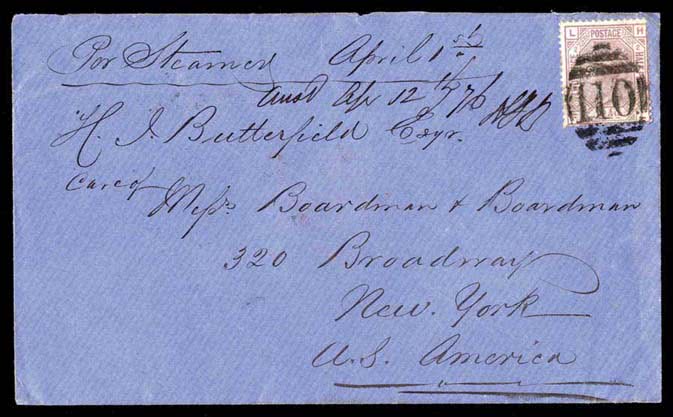 Per Steamer April 1st
Ansd Apr 12th 76
H. J. Butterfield Esqr.
Care of
Messrs Boardman & Boardman
320 Broadway
New York
U.S. America
L POSTAGE H
110